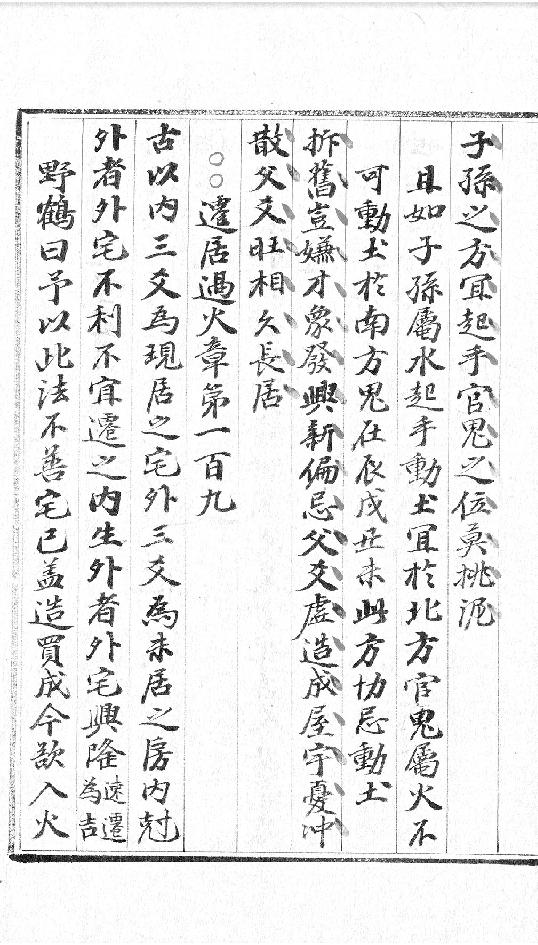 子孫之方宜起手官鬼之位莫挑泥
且如子孫屬水起手動土宜於北方官鬼屬火不
可動土於南方鬼在辰戌丑未此方切忌動土
拆舊豈嫌才象發興新偏忌父爻虛造成屋宇憂冲
散父爻旺相久長居
○○遷居過火章第一百九
古以内三爻為現居之宅外三爻為未居之房内尅
外者外宅不利不宜遷之内生外者外宅興隆速遷為吉
野鶴曰予以此法不善宅已盖造買成今欲入火